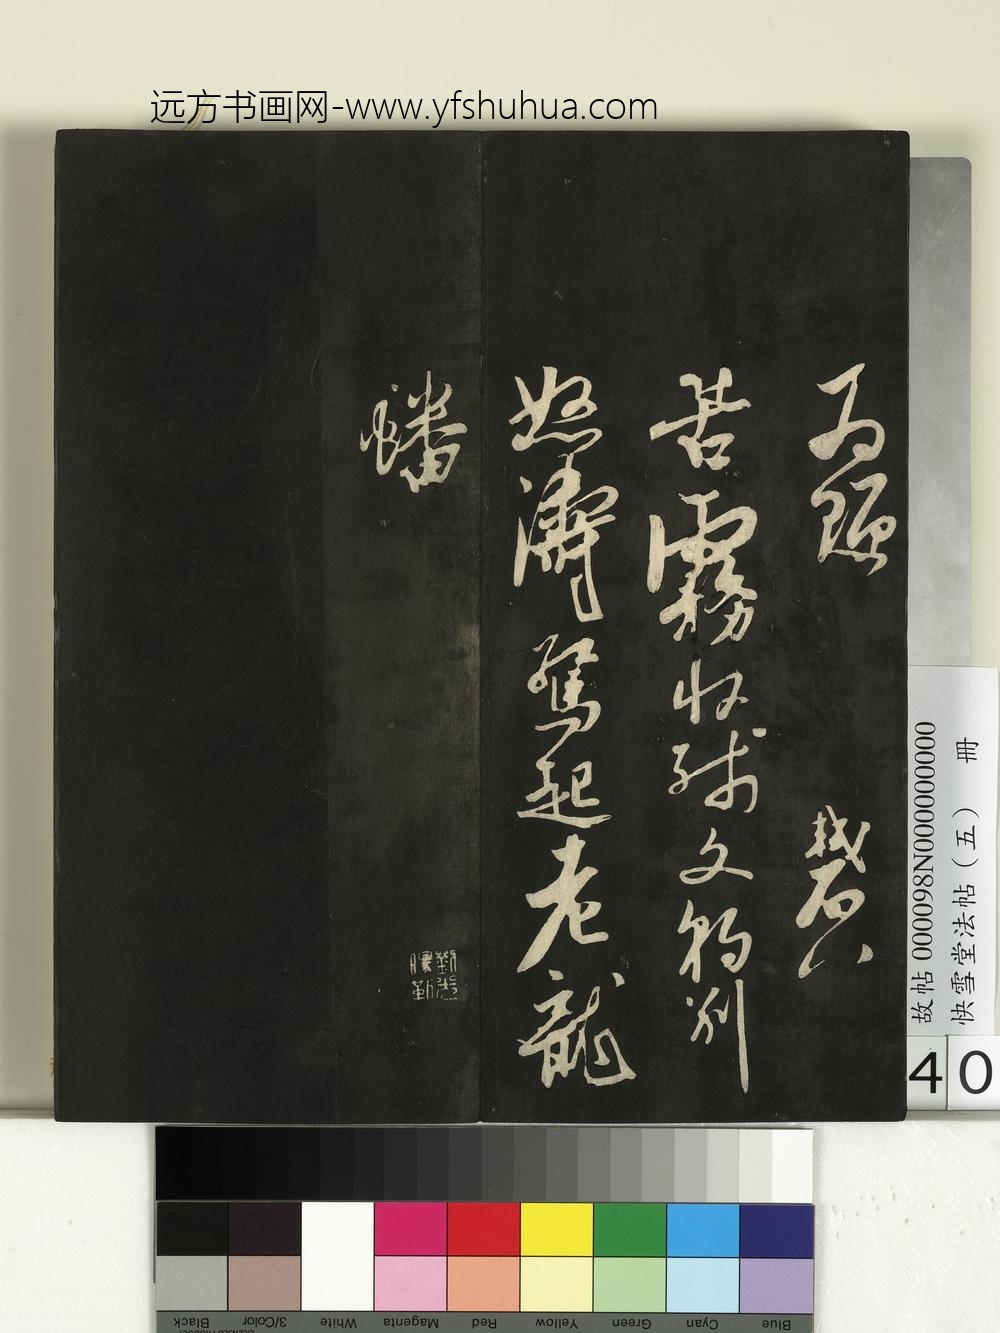 远方书画网-www.yfshuhua.com
苦霧收残文豹別
怒濤驚起老龍
蟠
劉光
暘勒
故帖 000098N000000000
快雪堂法帖（五） 冊
40
Blue
Cyan
Green
Yellow
Red
Magenta
White
3/Color
Black